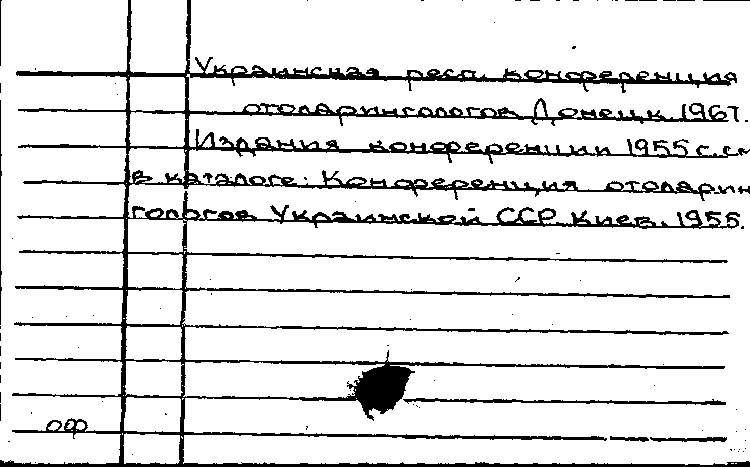 Украинская респ. конференция
отоларингологов Донецк 1967.
Издания конференции 1955 г. см
в каталоге: Конференция отоларин
гологов Украинской ССР. Киев. 1955.
ОФ